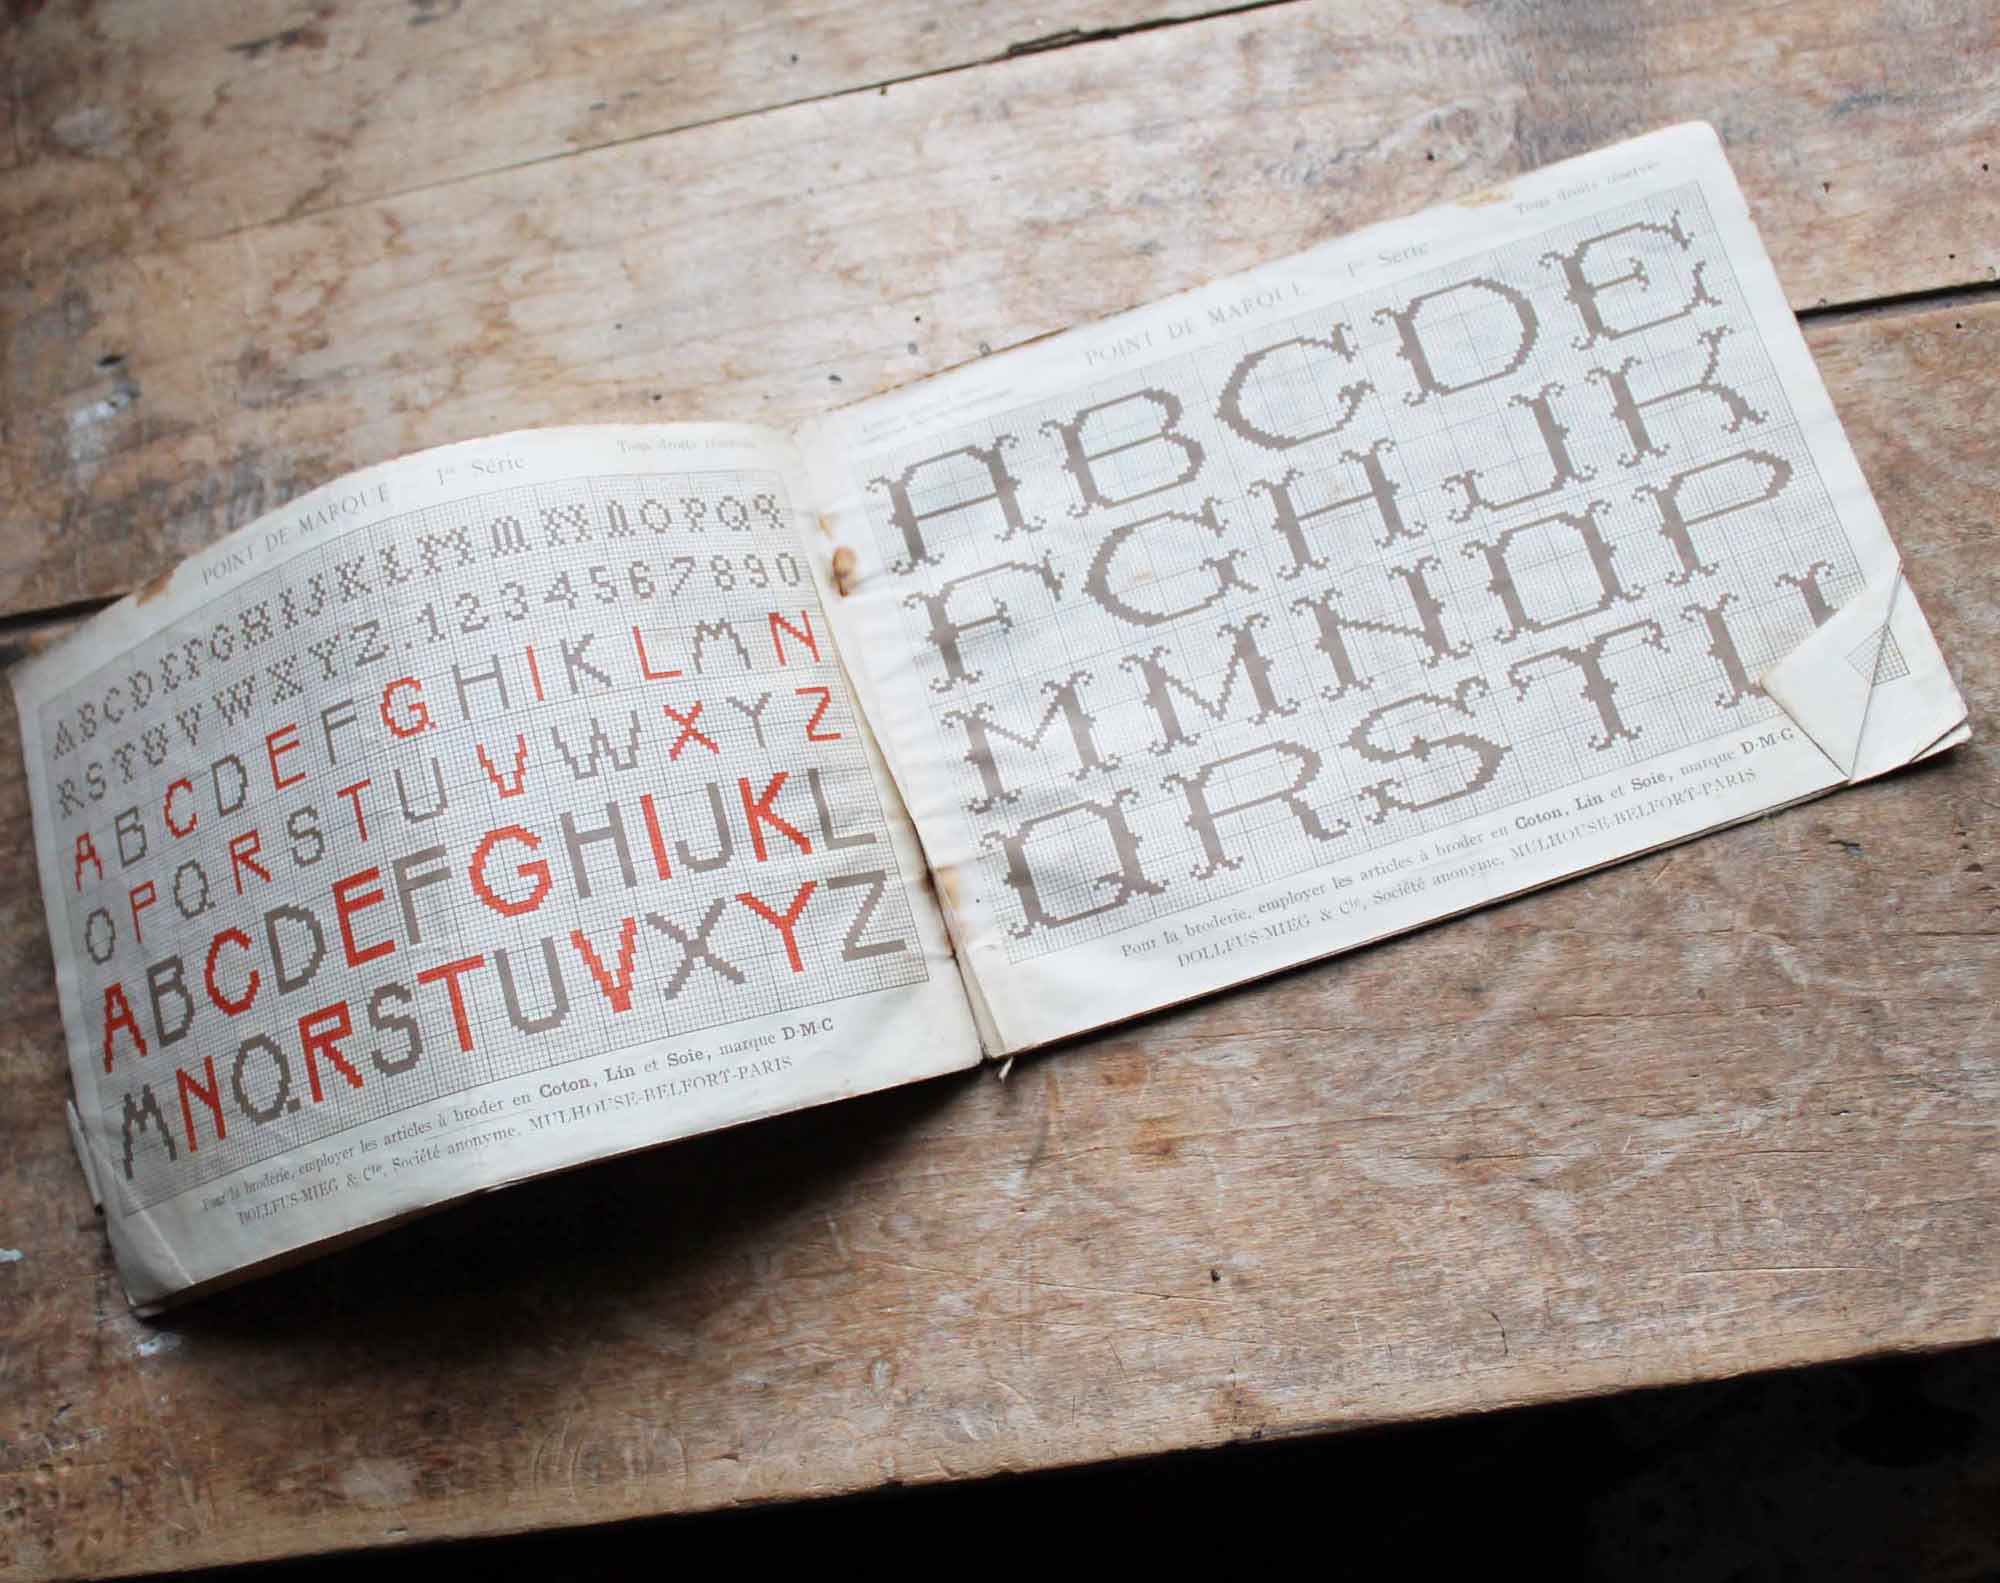 POINT DE MARQUE 1re Série
Tous droits réservés
A B C D E F G H I J K L M M N N O P Q Q
R S T U V W X Y Z . 1 2 3 4 5 6 7 8 9 0
A B C D E F G H I K L M N
O P Q R S T U V W X Y Z
A B C D E F G H I J K L
M N O R S T U V X Y Z
Pour la broderie, employer les articles à broder en Coton, Lin et Soie, marque D·M·C
DOLLFUS-MIEG & Cie, Société anonyme, MULHOUSE-BELFORT-PARIS
POINT DE MARQUE 1re Série
Tous droits réservés
A B C D E
F G H I J K
M M N O P
Q R S T U
Pour la broderie, employer les articles à broder en Coton, Lin et Soie, marque D·M·C
DOLLFUS-MIEG & Cie, Société anonyme, MULHOUSE-BELFORT-PARIS